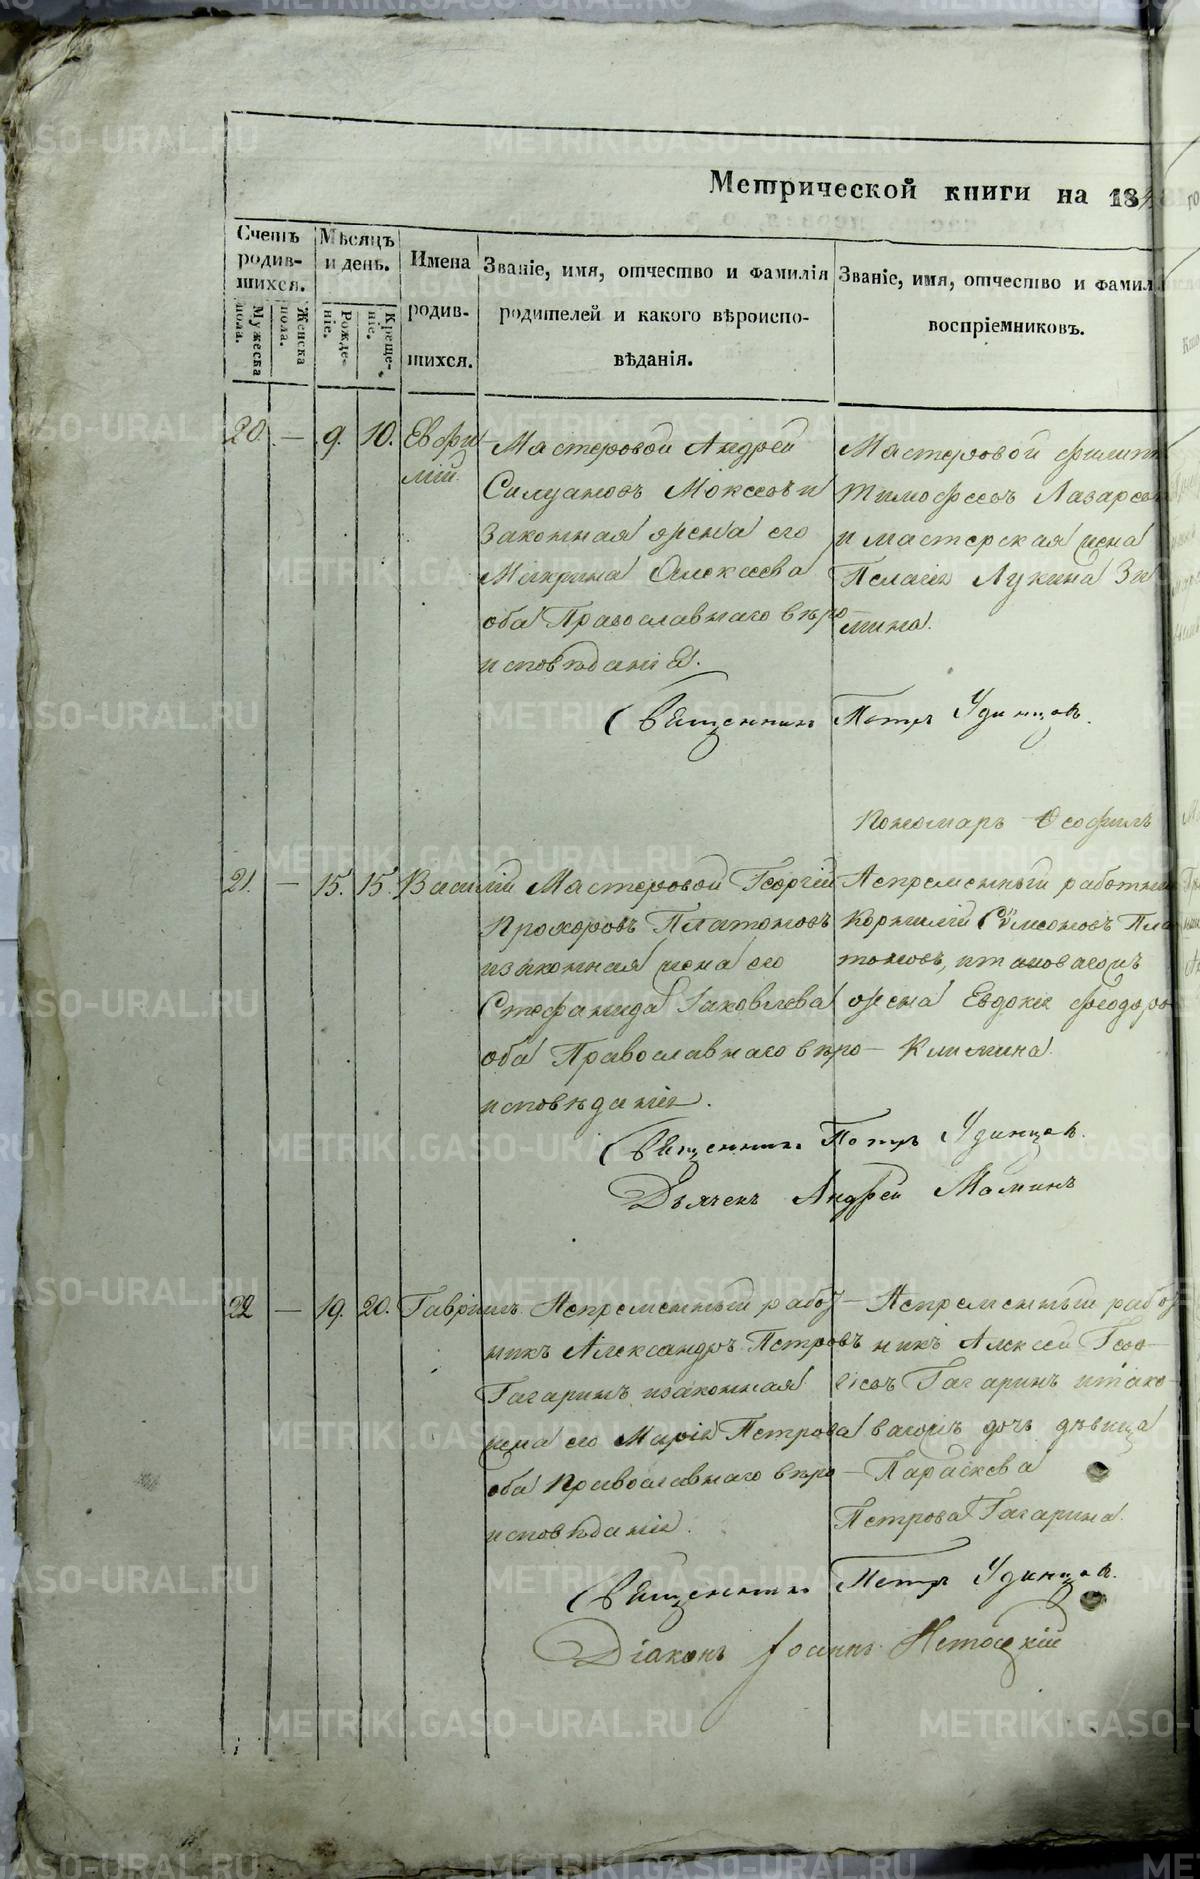 Метрической книги на 184
Счетъ родив-шихся.
Мужеска пола.
Женска пола.
Мѣсяцъ и день.
Рожде-ніе.
Креще-ніе.
Имена родив-шихся.
Званіе, имя, отчество и фамилія
родителей и какого вѣроиспо-
вѣданія.
Званіе, имя, отчество и фамил
воспріемниковъ.
20. — 9. 10. Евфи
мій.
Мастеровой Андрей
Силуановъ Мокѣевъ и
законная жена его
Макрина Алексѣева
оба Православнаго вѣро
исповѣданія.
Мастеровой Филипп
Тимофеевъ Лазарев
и мастерская жена
Пелагія Лукина Зи
мина.
Священникъ Петръ Удинцовъ.
Пономарь Ѳеофилъ
21. — 15. 15. Василій
Мастеровой Георгій
Прохоровъ Платоновъ
и законная жена его
Стефанида Іаковлева
оба Православнаго вѣро—
исповѣданія.
Непременный работник
Корнилій Симеоновъ Пла
тоновъ, и таковагожъ
жена Евдокія Феодоро
Климина.
Священникъ Петръ Удинцовъ.
Дьячекъ Андрей Маминъ
22 — 19. 20. Гавріилъ.
Непременный рабо—
никъ Александръ Петровъ
Гагаринъ и законная
жена его Марія Петрова
оба Православнаго вѣро—
исповѣданія.
Непременный рабо
никъ Алексей
Гагаринъ и тако—
вагожъ дочь девица
Параскева
Петрова Гагарина.
Священникъ Петръ Удинцовъ.
Діаконъ Іоаннъ
METRIKI.GASO-URAL.RU